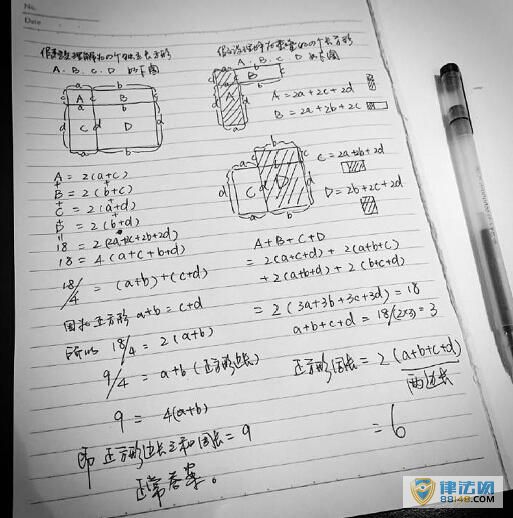 No.
Date
假定整理解为四个独立长方形
A、B、C、D 如左图
a b
c A B c
d C D d
a b
A = 2(a+c)
+
B = 2(b+c)
+
C = 2(a+d)
+
D = 2(b+d)
=
18 = 2(2a+2c+2b+2d)
18 = 4(a+c+b+d)
18/4 = (a+b)+(c+d)
因为正方形 a+b = c+d
所以 18/4 = 2(a+b)
9/4 = a+b (正方形边长)
9 = 4(a+b)
即正方形边长之和周长 = 9
正常答案。
的个长方形
A、B、C、D 如右图
a b
c A B c
d
a
A = 2a+2c+2d
B = 2a+2b+2c
a b
c
d C D d
a b
C = 2a+2b+2d
D = 2b+2c+2d
A+B+C+D
= 2(a+c+d) + 2(a+b+c)
+ 2(a+b+d) + 2(b+c+d)
= 2(3a+3b+3c+3d) = 18
a+b+c+d = 18/(2×3) = 3
正方形周长 = 2(a+b+c+d)
两边长
= 6
律法网
88148.COM